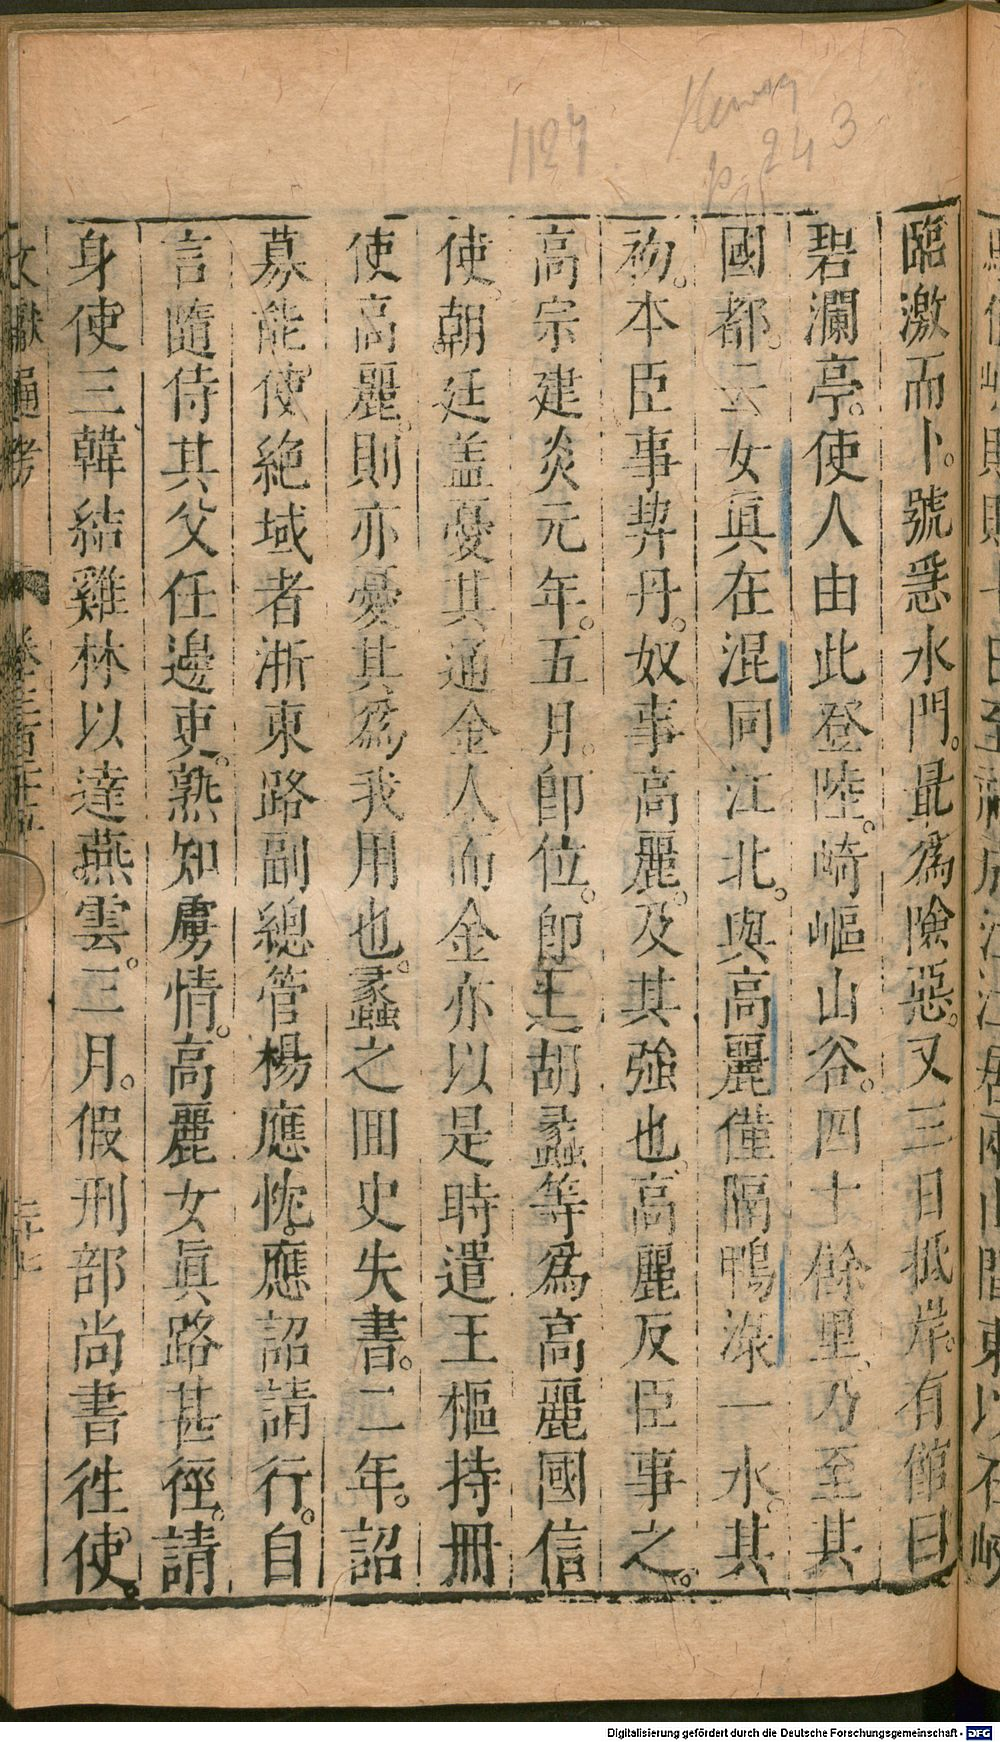 1127
p. 243
臨激而卜。號爲急水門。最爲險惡。又三日抵岸。有館曰
碧瀾亭。使人由此登陸。崎嶇山谷。四十餘里、乃至其
國都。云女眞在混同江北。與高麗僅隔鴨淥一水。其
初。本臣事契丹。奴事高麗。及其強也、高麗反臣事之。
高宗建炎元年。五月。卽位。卽遣胡蠡等爲高麗國信
使。朝廷盖憂其通金人而金亦以是時遣王樞持冊
使高麗。則亦憂其爲我用也。蠡之囬史失書。二年。詔
募能使絶域者浙東路副總管楊應忱。應詔請行。自
言隨侍其父任邊吏。熟知虜情。高麗女眞路甚徑。請
身使三韓結雞林以達燕雲。三月。假刑部尚書徃使。
文獻通考
卷三百二十五
三十七
Digitalisierung gefördert durch die Deutsche Forschungsgemeinschaft - DFG